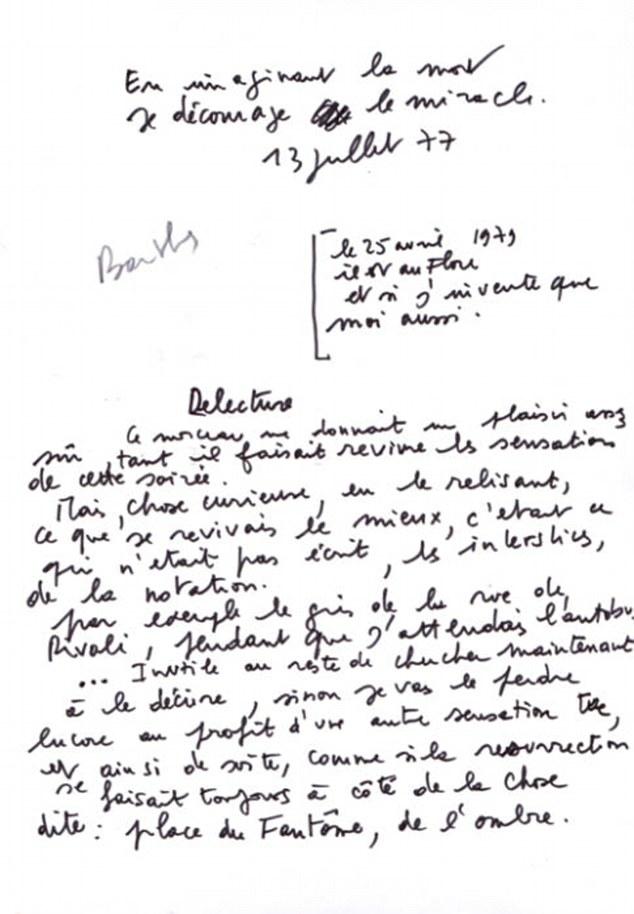 En imaginant la mort
je décourage le miracle.
13 juillet 77
Barthes
le 25 avril 1979
il est au Flore
et si j'invente que
moi aussi.
Relecture
Ce morceau me donnait un plaisir assez
sûr, tant il faisait revivre les sensations
de cette soirée.
Mais, chose curieuse, en le relisant,
ce que je revivais le mieux, c'était ce
qui n'était pas écrit, les interstices,
de la notation.
par exemple le gris de la rue de
Rivoli, pendant que j'attendais l'autobus
... Inutile au reste de chercher maintenant
à le décrire, sinon je vas le perdre
encore au profit d'une autre sensation tue,
et ainsi de suite, comme si la resurrection
se faisait toujours à côté de la chose
dite : place du Fantôme, de l'ombre.